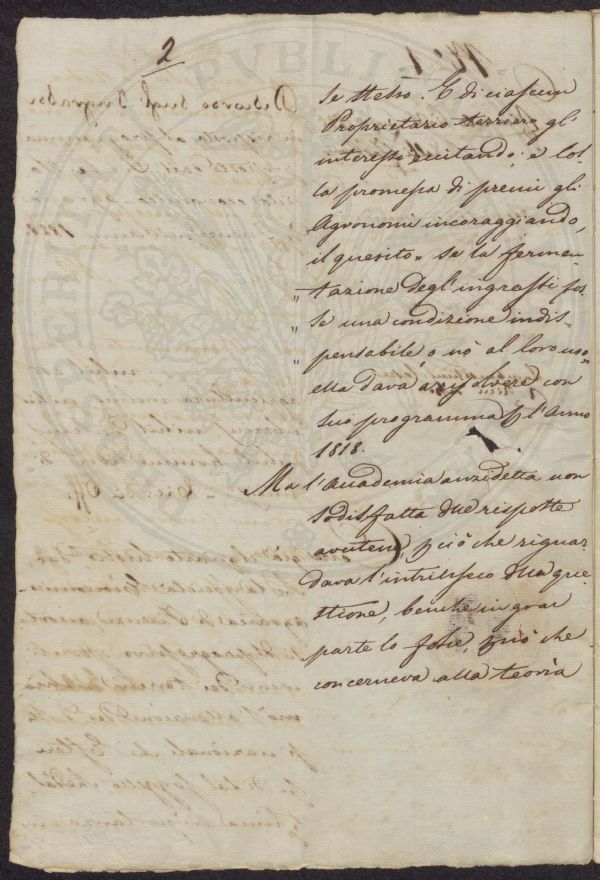 2
se stesso. E di ciascun
Proprietario terriero gl'
interessi eccitando, e col-
la promessa di premi gli
Agronomi incoraggiando,
il quesito „ se la fermen-
„ tazione degl'ingrassi fos-
„ se una condizione indis-
„ pensabile, o nò al loro uso„
ella dava a risolvere con
suo programma p l'Anno
1818.
Ma l'Accademia anzidetta non
sodisfatta dlle risposte
avutene, p ciò che riguar-
dava l'intrinseco dlla que-
stione, benchè in gran
parte lo fosse, p ciò che
concerneva alla teorìa